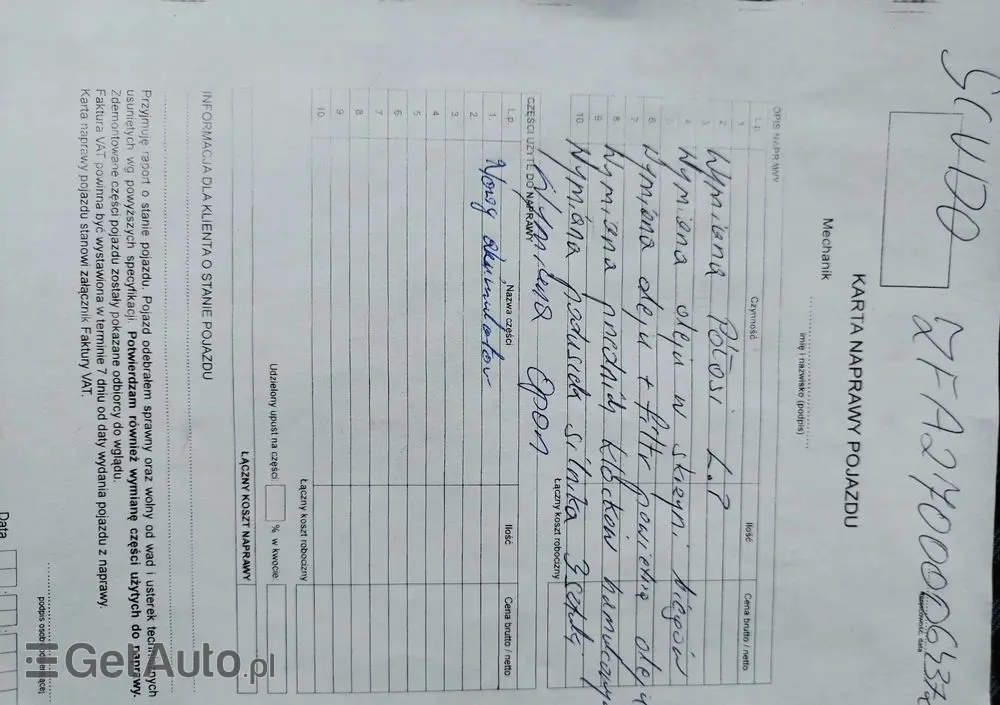 SCUDO ZFA27000064372
KARTA NAPRAWY POJAZDU
miejscowość, data
Mechanik
imię i nazwisko (podpis)
OPIS NAPRAWY
L.p. Czynność Ilość Cena brutto / netto
1
2 Wymiana Półosi L.P
3
4 Wymiana oleju w skrzyni biegów
5
6 Wymiana oleju + filtr powietrza oleju
7
8 Wymiana przednich klocków hamulcowy
9
10 Wymiana poduszek silnika 3 sztuki
Łączny koszt robocizny
Wymiana Opon
CZĘŚCI UŻYTE DO NAPRAWY
L.p. Nazwa części Ilość Cena brutto / netto
1. Nowy akumulator
2.
3
4
5
6
7
8
9
10
Łączny koszt robocizny
Udzielony upust na części: % w kwocie:
ŁĄCZNY KOSZT NAPRAWY
INFORMACJA DLA KLIENTA O STANIE POJAZDU
Przyjmuję raport o stanie pojazdu. Pojazd odebrałem sprawny oraz wolny od wad i usterek technicznych
usuniętych wg powyższych specyfikacji. Potwierdzam również wymianę części użytych do naprawy.
Zdemontowane części pojazdu zostały pokazane odbiorcy do wglądu.
Faktura VAT powinna być wystawiona w terminie 7 dniu od daty wydania pojazdu z naprawy.
Karta naprawy pojazdu stanowi załącznik Faktury VAT.
podpis osoby
Data
GetAuto.pl